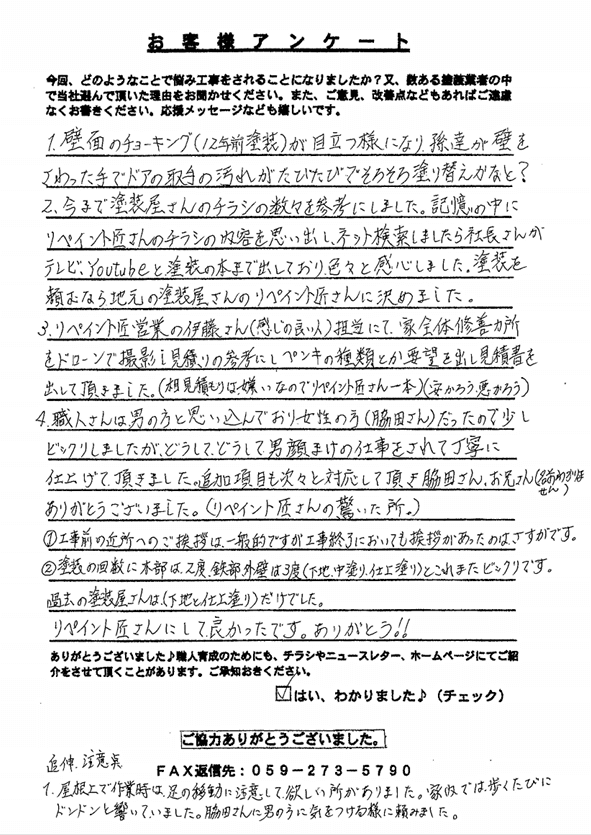 お客様アンケート
今回、どのようなことで悩み工事をされることになりましたか？又、数ある塗装業者の中
で当社選んで頂いた理由をお聞かせください。また、ご意見、改善点などもあればご遠慮
なくお書きください。応援メッセージなども嬉しいです。
1. 壁面のチョーキング(12年前塗装)が目立つ様になり、孫達が壁を
さわった手でドアの取手の汚れがたびたびでそろそろ塗り替えかなと？
2、今まで塗装屋さんのチラシの数々を参考にしました。記憶の中に
リペイント匠さんのチラシの内容を思い出し、ネット検索しましたら社長さんが
テレビ、Youtubeと塗装の本まで出しており、色々と感心しました。塗装を
頼むなら地元の塗装屋さんのリペイント匠さんに決めました。
3. リペイント匠営業の伊藤さん(感じの良い人)担当にて、家全体修善カ所
をドローンで撮影し見積りの参考にしペンキの種類とか要望を出し見積書を
出して頂きました。(相見積もりは、嫌いなのでリペイント匠さん一本)(安かろう、悪かろう)
4. 職人さんは男の方と思い込んでおり女性の方(脇田さん)だったので少し
ビックリしましたが、どうして、どうして、男顔まけの仕事をされて丁寧に
仕上げて、頂きました。追加項目も次々と対応して頂き脇田さん、お兄さん(名前わかりません)
ありがとうございました。(リペイント匠さんの驚いた所。)
①工事前の近所へのご挨拶は、一般的ですが工事終了においても挨拶があったのは、さすがです。
②塗装の回数に木部は、2度、鉄部外壁は3度(下地、中塗り、仕上塗り)とこれまたビックリです。
過去の塗装屋さんは、(下地と仕上塗り)だけでした。
リペイント匠さんにして、良かったです。ありがとう!!
ありがとうございました♪職人育成のためにも、チラシやニュースレター、ホームページにてご紹
介をさせて頂くことがあります。ご承知おきください。
☑はい、わかりました♪（チェック）
ご協力ありがとうございました。
追伸、注意点
ＦＡＸ返信先：０５９－２７３－５７９０
1. 屋根上で作業時は、足の移動に注意して、欲しい所がありました。家内では、歩くたびに
ドンドンと響いていました。脇田さんに男の方に気をつける様に頼みました。